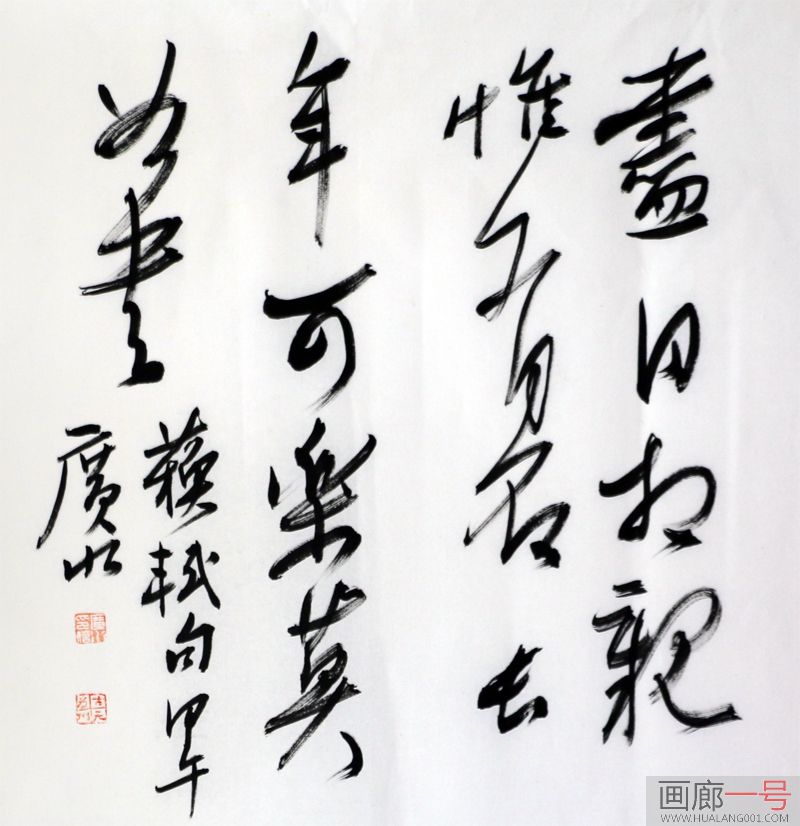 盡日相親
惟有石長
年可樂莫
如書
蘇軾句甲午
廣
画廊一号
WWW.HUALANG001.COM